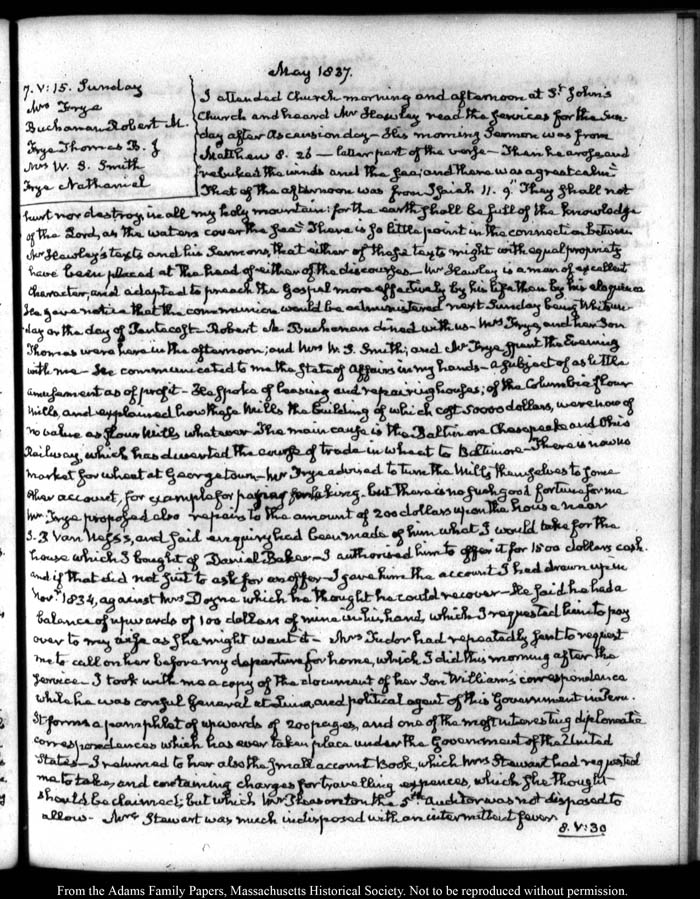 May 1837.
7. V:15. Sunday
Mrs Frye
Buchanan Robert M.
Frye Thomas B. J
Mrs W. S. Smith
Frye Nathaniel
I attended Church morning and afternoon at St. John's
Church and heard Mr Hawley read the services for the Sun-
day after Ascension day - His morning Sermon was from
Matthew 8. 26 — latter part of the verse - Then he arose and
rebuked the winds and the sea; and there was a great calm"
That of the afternoon was from Isaiah 11. 9. "They shall not
hurt nor destroy, in all my holy mountain: for the earth shall be full of the knowledge
of the Lord, as the waters cover the sea" There is so little point in the connection between
Mr Hawley's texts and his Sermons, that either of those texts might with equal propriety
have been placed at the head of either of the discourses - Mr Hawley is a man of excellent
Character, and adapted to preach the Gospel more effectively by his life than by his eloquence
He gave notice that the communion would be administered next Sunday being Whitsun-
day or the day of Pentecost - Robert M. Buchanan dined with us - Mrs Frye, and her Son
Thomas were here in the afternoon; and Mrs W. S. Smith; and Mr Frye spent the Evening
with me - He communicated to me the State of affairs in my hands - a subject of as little
amusement as of profit - He spoke of leasing and repairing houses; of the Columbia flour
Mills, and explained how these Mills the building of which cost 50000 dollars, were now of
no value as flour Mills whatever The main cause is the Baltimore Chesapeake and Ohio
Railway, which has diverted the course of trade in wheat to Baltimore - There is now no
market for wheat at Georgetown - Mr Frye advised to turn the Mills themselves to some
other account, for example for paper making - but there is no such good fortune for me
Mr Frye proposed also repairs to the amount of 200 dollars upon the house near
J. P Van Ness's, and said enquiry had been made of him what I would take for the
house which I bought of Daniel Baker - I authorised him to offer it for 1500 dollars cash.
and if that did not suit to ask for an offer - I gave him the account I had drawn up in
Novr. 1834, against Mrs Doyne which he thought he could recover - He said he had a
balance of upwards of 100 dollars of mine in his hand, which I requested him to pay
over to my wife as she might want it - Mrs Tudor had repeatedly sent to request
me to call on her before my departure for home, which I did this morning after the
service - I took with me a copy of the document of her Son William's correspondence
while he was consul General at Lima, and political agent of this Government in Peru.
It forms a pamphlet of upwards of 200 pages, and one of the most interesting diplomatic
correspondences which has ever taken place under the Government of the United
States - I returned to her also the small account Book, which Mrs Stewart had requested
me to take, and containing charges for travelling expences, which she thought
should be claimed; but which Mr Pleasonton the 5th Auditor was not disposed to
allow - Mrs Stewart was much indisposed with an intermittent fever.
8. V:30
From the Adams Family Papers, Massachusetts Historical Society. Not to be reproduced without permission.